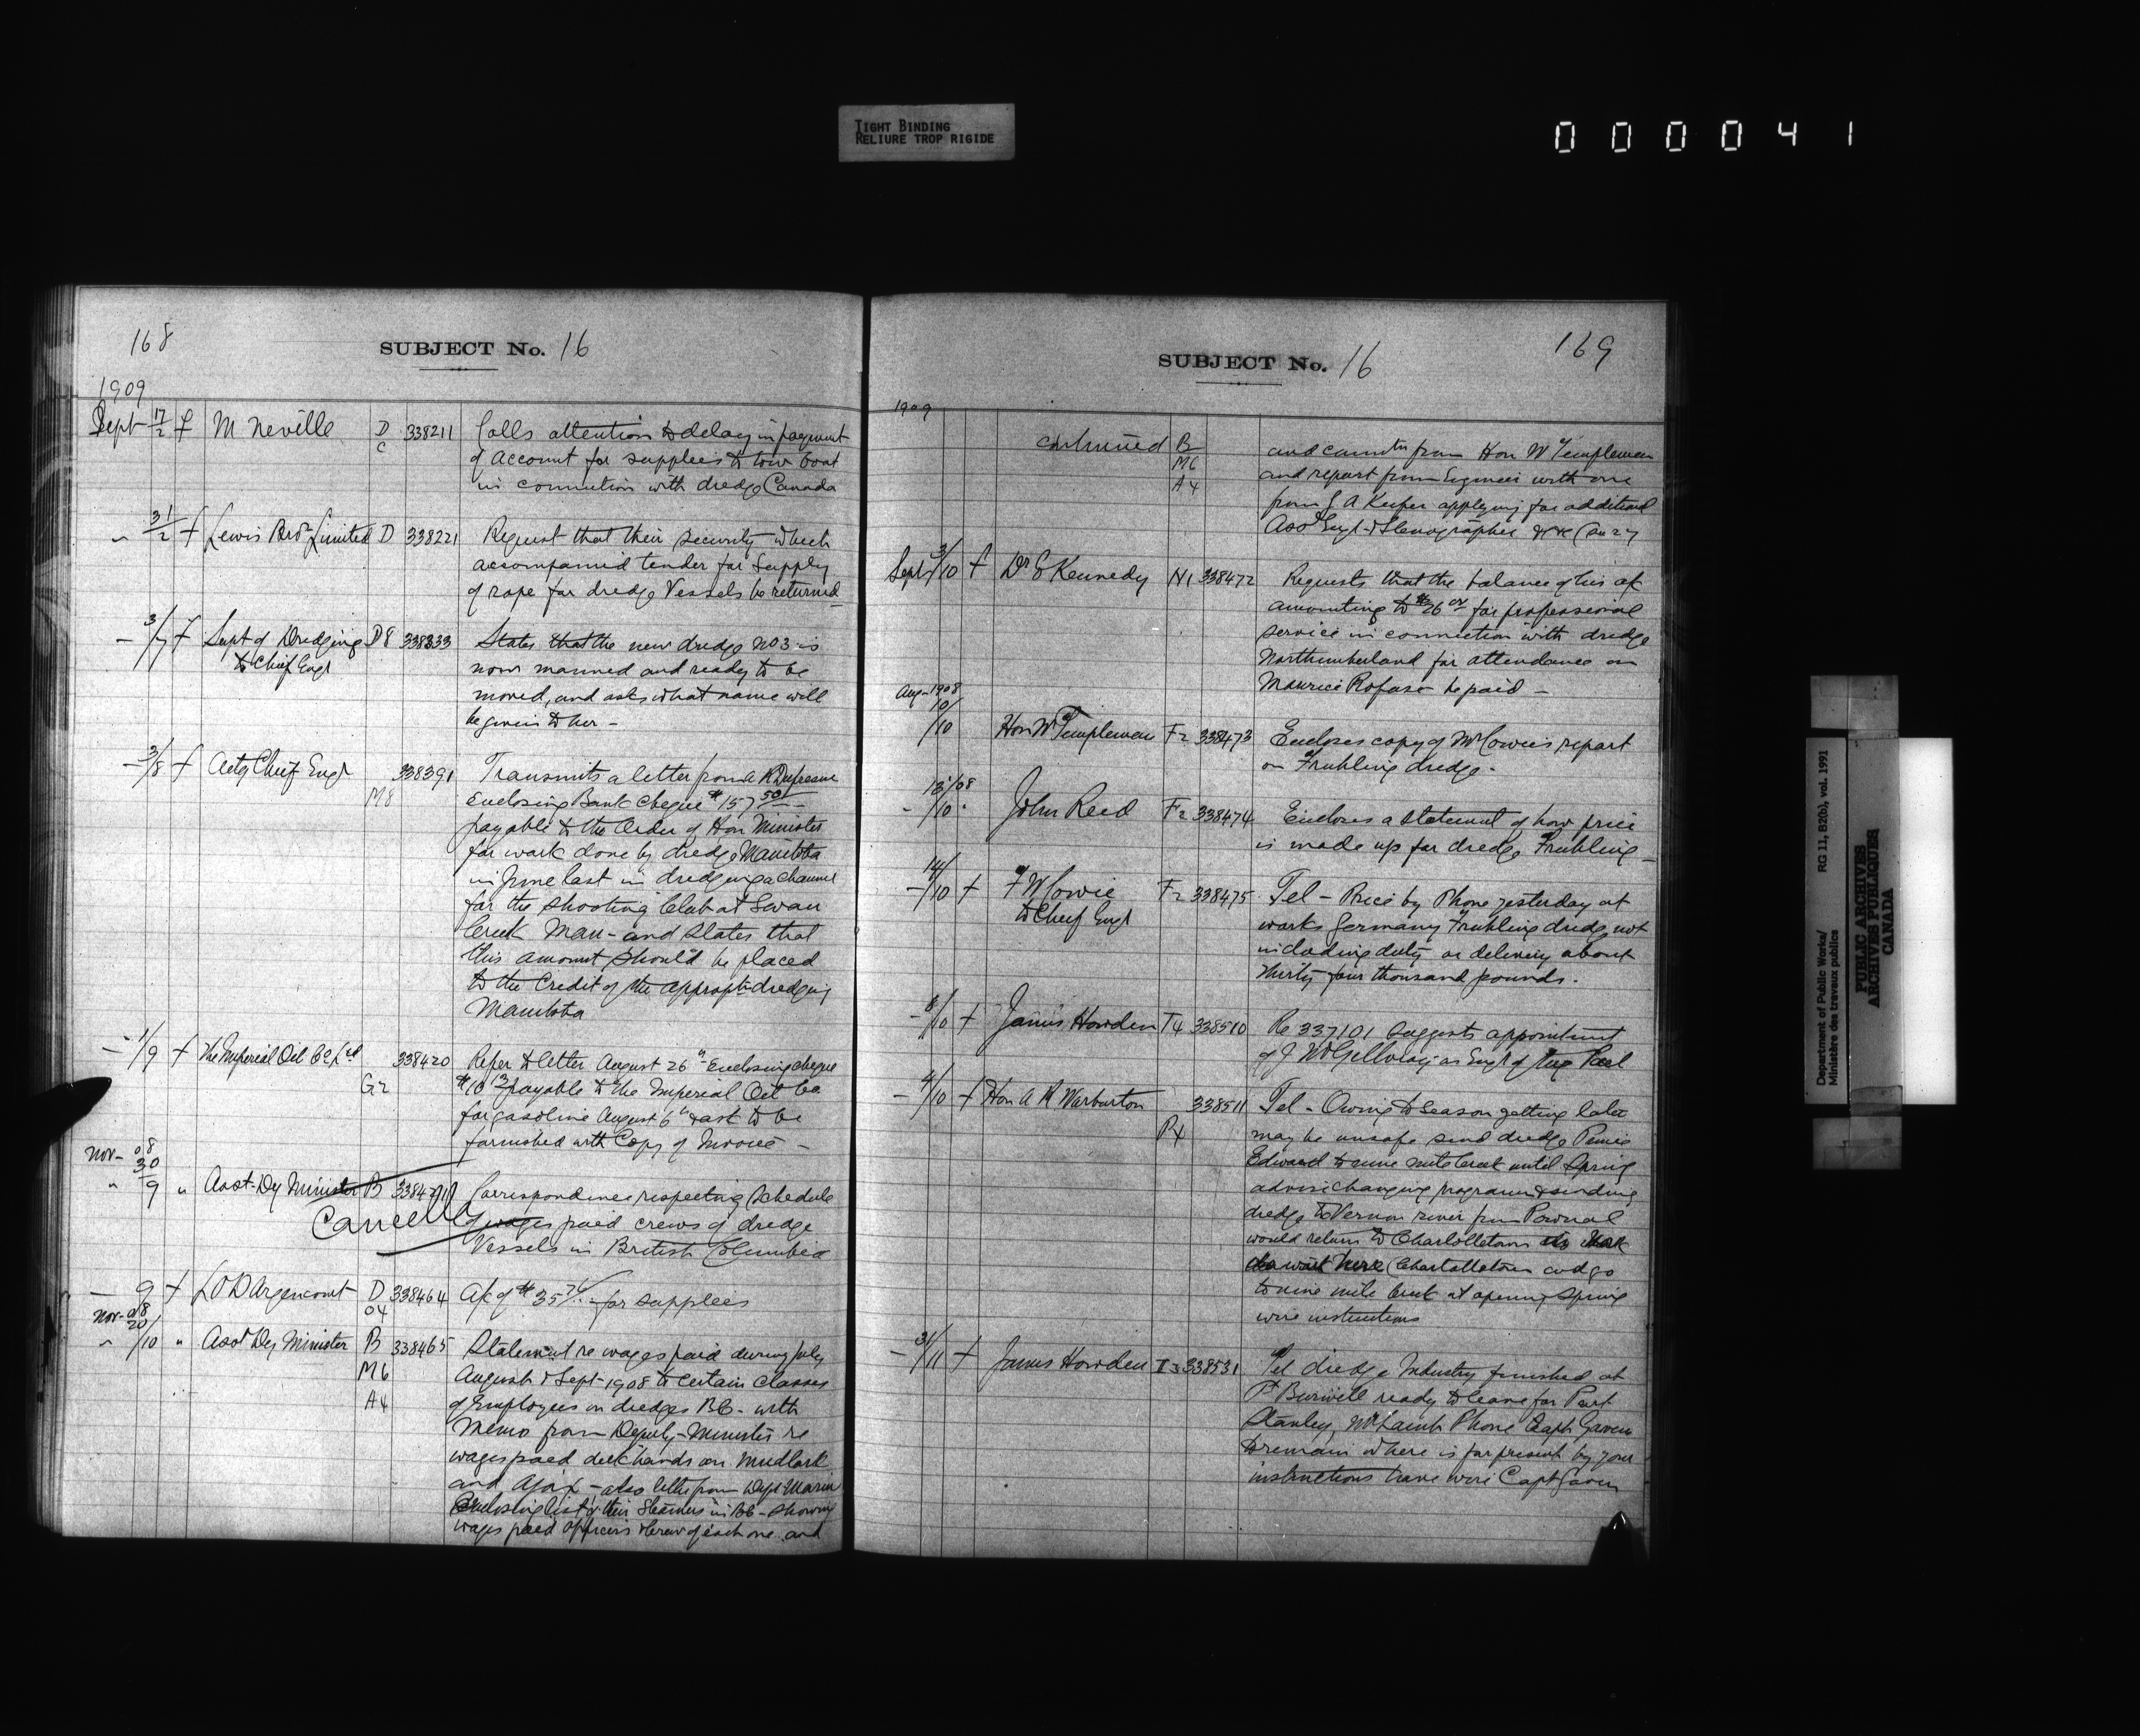 TIGHT BINDING
RELIURE TROP RIGIDE
000041
168
SUBJECT No. 16
1909
Sept 17/2 f M Neville D C 338211 Calls attention to delay in payment
of account for supplies to tow boat
in connection with dredge Canada
" 31/2 f Lewis Bros Limited D 338221 Request that their security which
accompanied tender for supply
of rope for dredge Vessels be returned
— 3/7 f Supt of Dredging D8 338333 States that the new dredge No 3 is
to Chief Engr now manned and ready to be
moved, and asks what name will
be given to her —
— 3/8 f Actg Chief Engr M8 338391 Transmits a letter from A R Dufresne
Enclosing Bank cheque $157 50
payable to the Order of Hon Minister
for work done by dredge Manitoba
in June last in dredging a channel
for the Shooting Club at Swan
Creek Man - and States that
this amount should be placed
to the Credit of the appropt dredging
Manitoba
— 1/9 f The Imperial Oil Co Ltd G2 338420 Refer to letter August 26th Enclosing cheque
$10 13 payable to the Imperial Oil Co
for gasoline August 6th & ask to be
furnished with Copy of Invoice —
Nov- 08
30
" 9 " Asst Dy Minister B Correspondence respecting Schedule
Cancelled of wages paid crews of dredge
Vessels in British Columbia
— 9 f L O D'Argencourt D O4 338464 A/c of $35 for supplies
Nov- 08
20
" /10 " Asst Dy Minister B 338465 Statement re wages paid during July
M6 August & Sept 1908 to certain classes
A4 of Employees on dredges B.C. with
Memo from Deputy-Minister re
wages paid deckhands on Mudlark
and Ajax - also letter from Dept Marine
Enclosing list of their Steamers in B.C. - showing
wages paid officers & crew of each one and
169
SUBJECT No. 16
1909
continued B and from Hon W Templeman
M6 and report from Engineer with one
A4 from J A Keefer applying for additional
Asst Engr & Stenographer
Sept 3/10 f Dr Kennedy N1 338472 Requests that the balance of his a/c
amounting to $26 00 for professional
service in connection with dredge
Northumberland for attendance on
Maurice be paid —
Aug-1908
10
/10 Hon W Templeman F2 338473 Encloses copy of Mr Cowie's report
on Fruhling dredge.
13/08
- /10 John Reid F2 338474 Encloses a statement of how price
is made up for dredge Fruhling —
14
— /10 f F W Cowie F2 338475 Tel - Price by Phone yesterday at
to Chief Engr works Germany Fruhling dredge not
including duty or delivery about
thirty four thousand pounds.
— 8/10 f James Howden T4 338510 Re 337101 suggests appointment
of J as Engr of tug
— 4/10 f Hon A R Warburton P4 338511 Tel - Owing to season getting late
may be unsafe send dredge Prince
Edward to nine mile Creek until Spring
advise changing programme & sending
dredge to Vernon river from Pownal
would return to Charlottetown
Charlottetown and go
to nine mile Creek at opening Spring
wire instructions
— 31/11 f James Howden I3 338531 Tel dredge Industry finished at
Pt Burwell ready to leave for Port
Stanley, Phone Capt Gavin
to remain where is for present by your
instructions have wire Capt Gavin
Department of Public Works/ RG 11, B2(b), vol. 1991
Ministère des travaux publics
PUBLIC ARCHIVES
ARCHIVES PUBLIQUES
CANADA